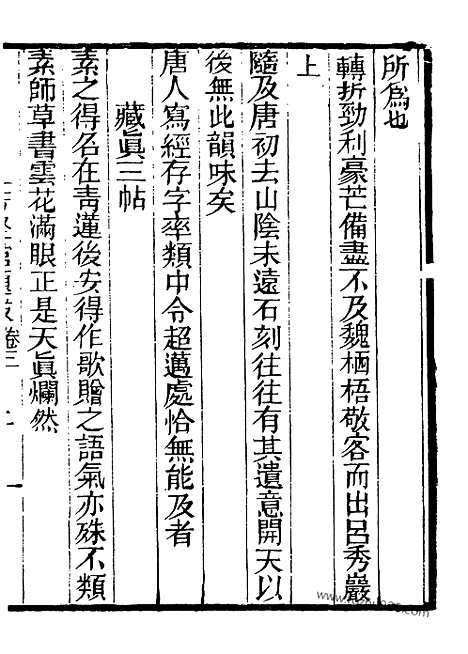 所爲也
轉折勁利豪芒備盡不及魏栖梧敬客而出呂秀巖
上
隨及唐初去山陰未遠石刻往往有其遺意開天以
後無此韻味矣
唐人寫經存字率類中令超邁處恰無能及者
藏眞三帖
素之得名在靑蓮後安得作歌贈之語氣亦殊不類
素師草書雲花滿眼正是天眞爛然
卷三